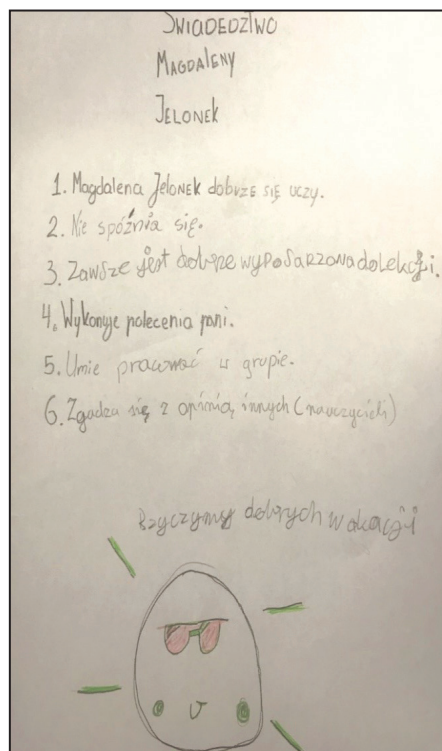 ŚWIADEDZTWO
MAGDALENY
JELONEK
1. Magdalena Jelonek dobrze się uczy.
2. Nie spóźnia się.
3. Zawsze jest dobrze wyposarzona do lekcji.
4. Wykonuje polecenia pani.
5. Umie pracować w grupie.
6. Zgadza się z opinią innych (nauczycieli)
Rzyczymy dobrych wakacji